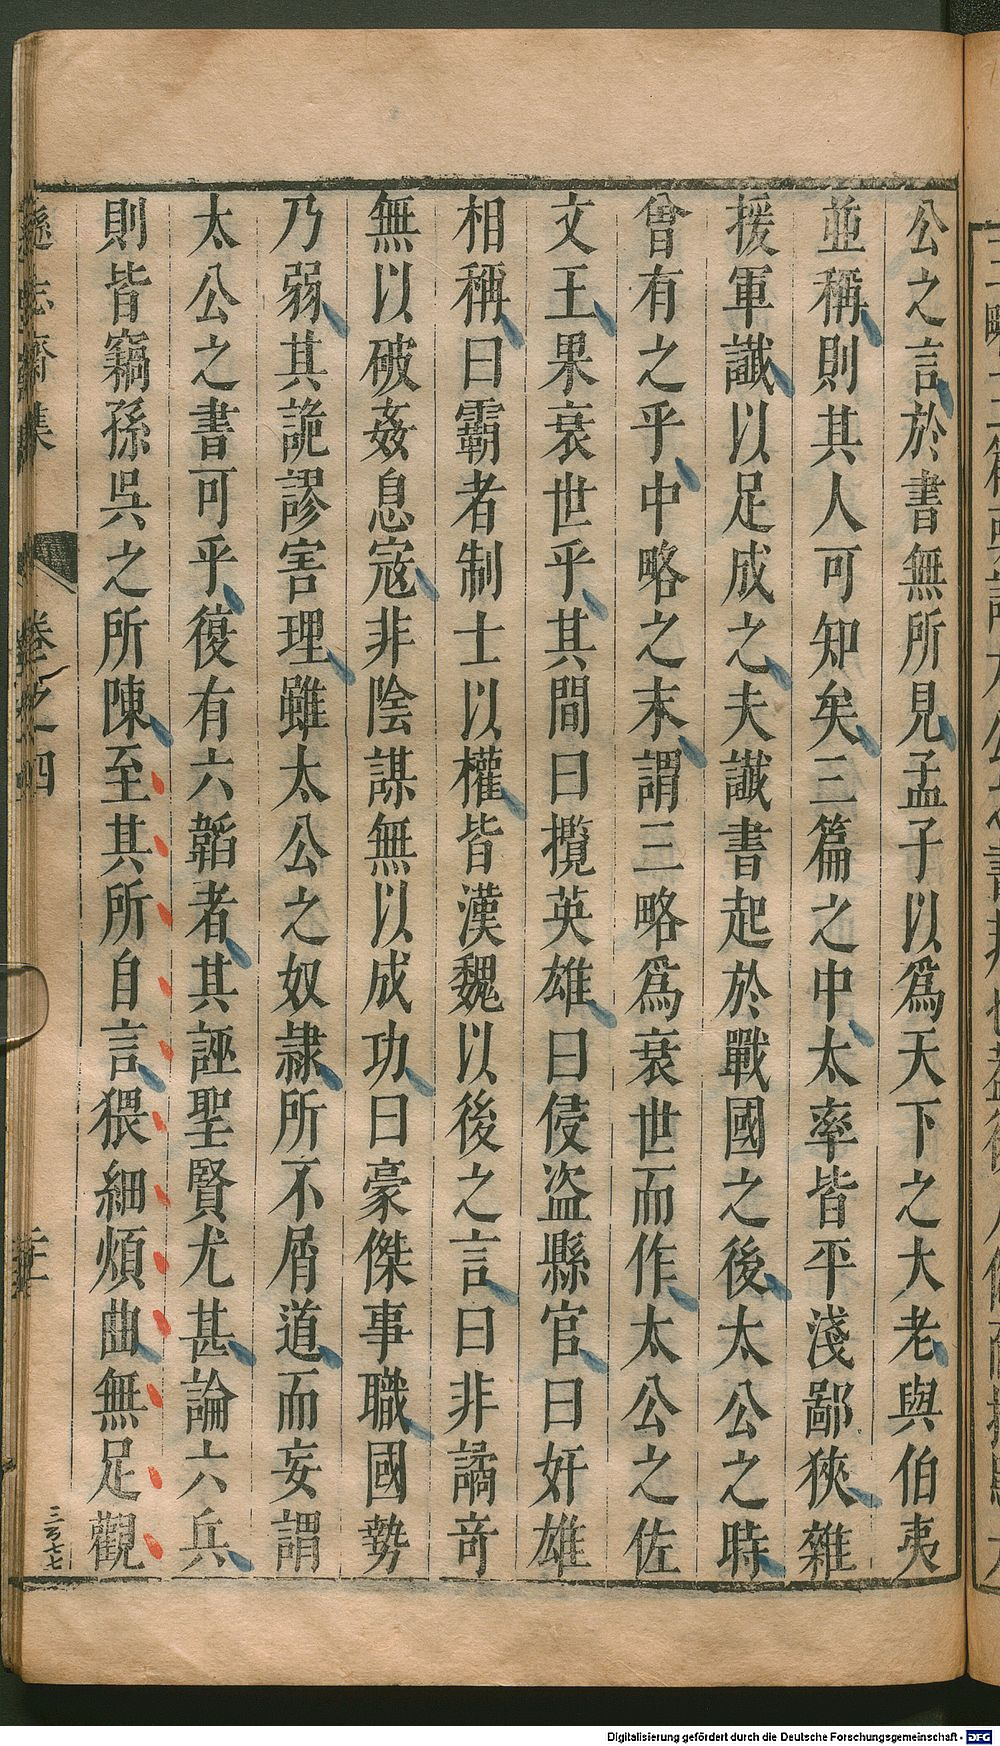 公之言於書無所見孟子以爲天下之大老與伯夷
並稱則其人可知矣三篇之中太率皆平淺鄙狹雜
援軍讖以足成之夫讖書起於戰國之後太公之時
曾有之乎中略之末謂三略爲衰世而作太公之佐
文王果衰世乎其間曰攬英雄曰侵盗縣官曰奸雄
相稱曰霸者制士以權皆漢魏以後之言曰非譎竒
無以破姦息寇非隂謀無以成功曰豪傑事職國勢
乃弱其詭謬害理雖太公之奴隷所不屑道而妄謂
太公之書可乎復有六韜者其誣聖賢尤甚論六兵
則皆竊孫吳之所陳至其所自言猥細煩曲無足觀
遜志齋集
卷之四
三百七七
Digitalisierung gefördert durch die Deutsche Forschungsgemeinschaft - DFG